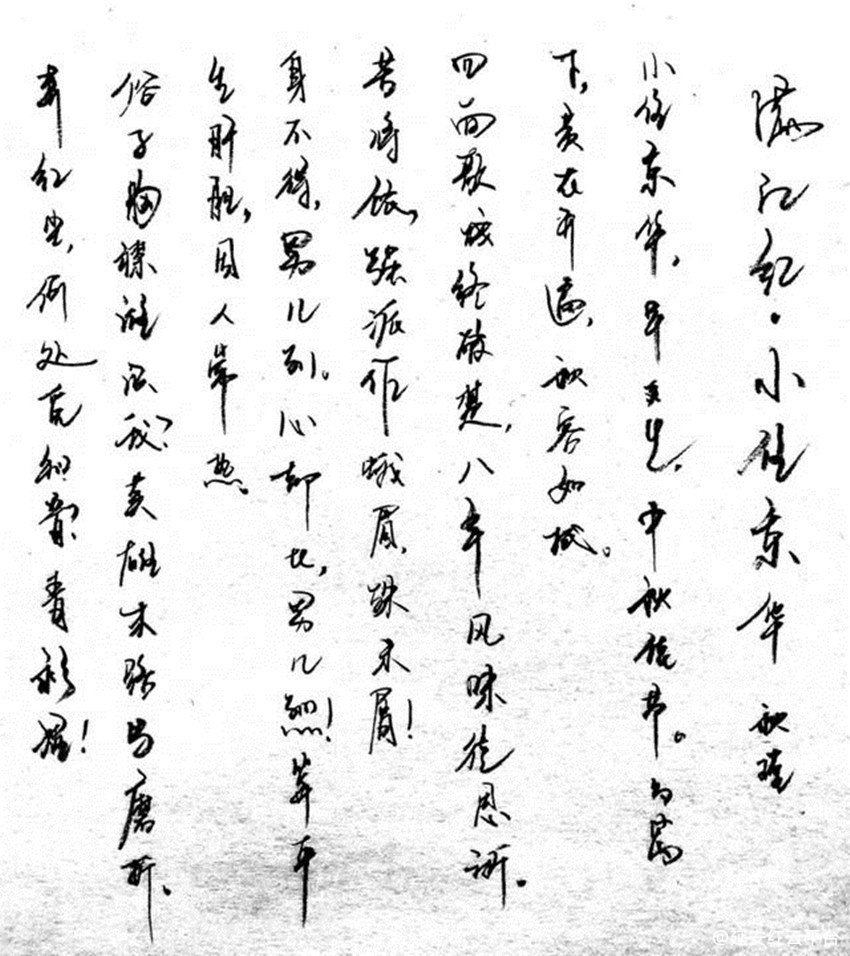 满江红·小住京华 秋瑾
小住京华,早又是,中秋佳节。为篱
下,黄花开遍,秋容如拭。
四面歌残终破楚,八年风味徒思浙。
苦将侬,强派作蛾眉,殊未屑!
身不得,男儿列。心却比,男儿烈!算平
生肝胆,因人常热。
俗子胸襟谁识我?英雄末路当磨折、
莽红尘,何处觅知音青衫湿!